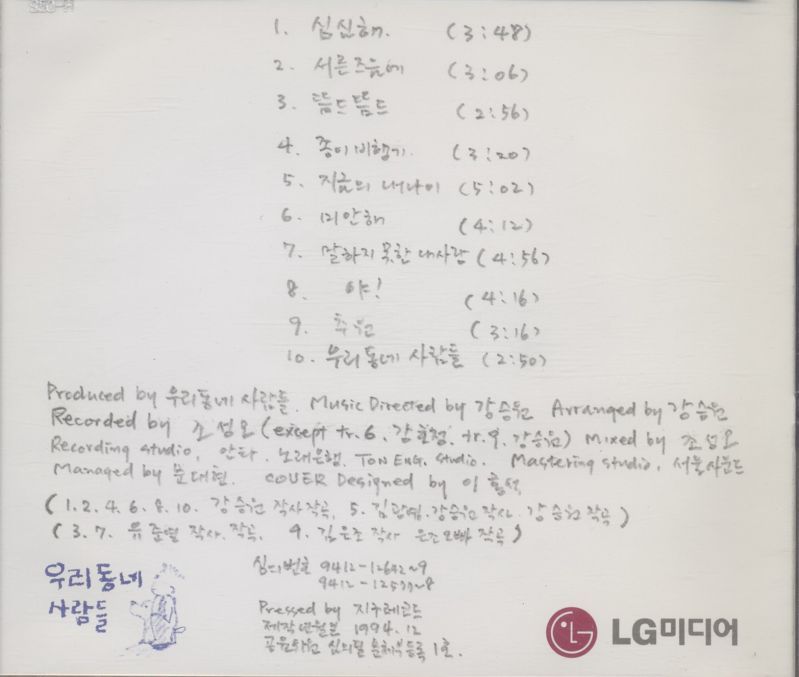 SEC-H
1. 심심해. (3:48)
2. 서른즈음에 (3:06)
3. 뜸드뜸드 (2:56)
4. 종이비행기 (3:20)
5. 지금의 내나이 (5:02)
6. 미안해 (4:12)
7. 말하지 못한 내사랑 (4:56)
8. 야! (4:16)
9. 추원 (3:16)
10. 우리동네 사람들 (2:50)
Produced by 우리동네 사람들. Music Directed by 강승원 Arranged by 강승원
Recorded by 조성오 (except tr.6, tr.9, 강승원) Mixed by 조성오
Recording studio, 안타, 노래은행, TON ENG. Studio. Mastering studio, 서울사운드
Managed by 문대현. COVER Designed by 이
(1.2.4.6.8.10. 강승원 작사작곡, 5. 강승원작사. 강승원 작곡)
(3.7. 유준열 작사.작곡, 9. 김은조 작사 은조오빠 작곡)
우리동네
사람들
심의번호 9412-12642~9
9412-12577~8
Pressed by 지구레코드
제작년월일 1994.12
공원위원 심의필 문체부등록 1호.
LG미디어